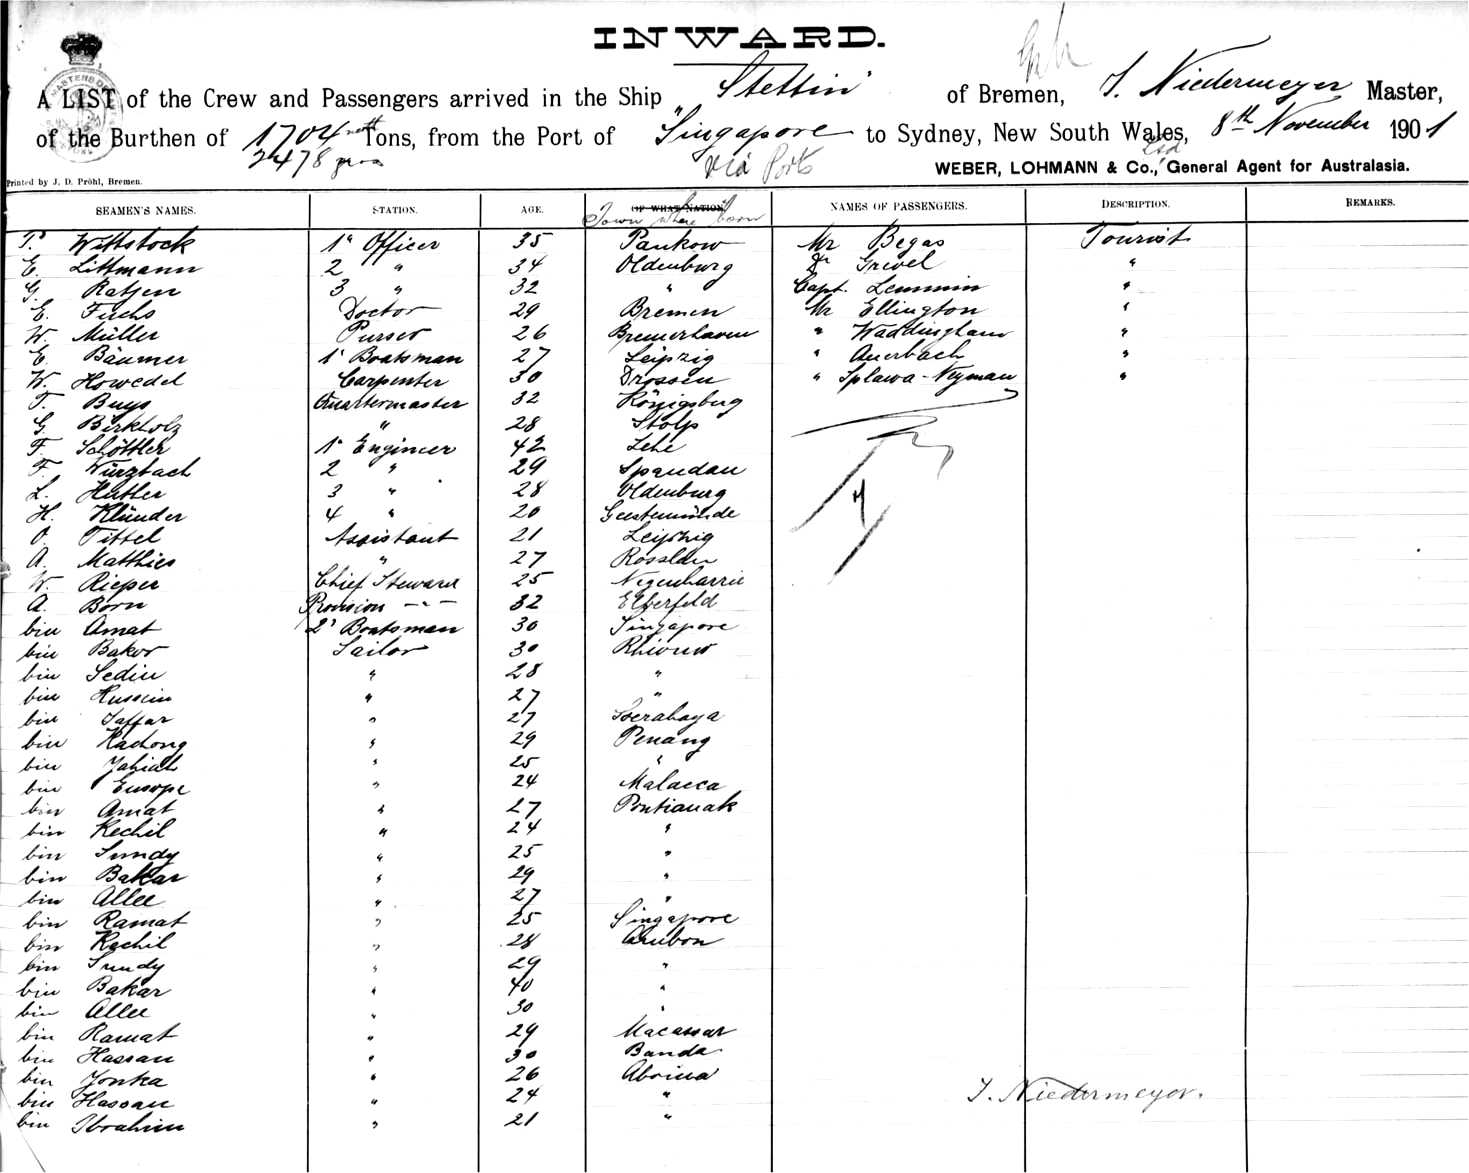 INWARD.
A LIST of the Crew and Passengers arrived in the Ship "Stettin" of Bremen, J. Niedermeyer Master,
of the Burthen of 1704 nett Tons, from the Port of Singapore to Sydney, New South Wales, 8th November 1901
2478 gross via Ports WEBER, LOHMANN & Co., Ltd General Agent for Australasia.
Printed by J. D. Pröhl, Bremen.
SEAMEN'S NAMES. STATION. AGE. OF WHAT NATION NAMES OF PASSENGERS. DESCRIPTION. REMARKS.
Town where born
Wittstock 1" Officer 35 Pankow Mr Begas Tourist
E. Littmann 2 " 34 Oldenburg Dr Grivel "
G. Ratjen 3 " 32 " Capt. Lemmin "
E. Fuchs Doctor 29 Bremen Mr Ellington "
W. Müller Purser 26 Bremerhaven " Waddingham "
E. Bäumer 1" Boatsman 27 Leipzig " Auerbach "
W. Howedel Carpenter 30 Drossen " Splawa-Neyman "
T. Buys Quartermaster 32 Königsberg
G. Birkholz " 28 Stolp
F. Schöttler 1" Engineer 42 Lehe
F. Würzbach 2 " 29 Spandau
L. Hutter 3 " 28 Oldenburg
H. Klünder 4 " 20 Geestemünde
O. Tittel Assistant 21 Leipzig
A. Matthies " 27 Rosslau
W. Rieper Chief Steward 25 Negenharrie
A. Born Provision -"- 32 Elberfeld
bin Amat 2" Boatsman 30 Singapore
bin Baker Sailor 30 Rhiouw
bin Sedin " 28 "
bin Hussein " 27 "
bin Jaffar " 27 Soerabaya
bin Kachong " 29 Penang
bin Jahiah " 25 "
bin Eusope " 24 Malacca
bin Amat " 27 Pontianak
bin Kechil " 24 "
bin Sundy " 25 "
bin Bakar " 29 "
bin Allee " 27 "
bin Ramat " 25 Singapore
bin Kechil " 28 Cheribon
bin Sundy " 29 "
bin Bakar " 40 "
bin Allee " 30 "
bin Ramat " 29 Macassar
bin Hassan " 30 Banda
bin Jonka " 26 Aboina
bin Hassan " 24 "
bin Ibrahim " 21 "
7
J. Niedermeyer.